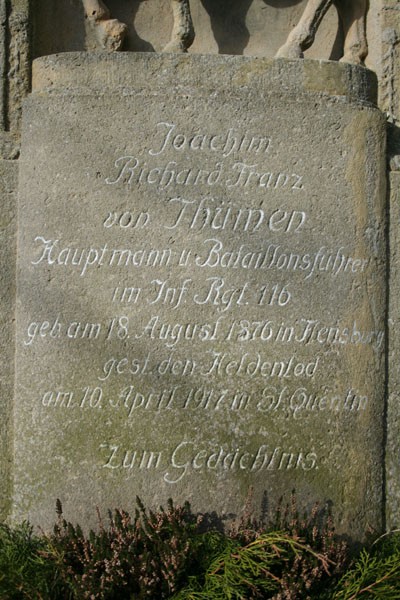 Joachim
Richard Franz
von Thümen
Hauptmann u. Bataillonsführer
im Inf. Rgt. 116
geb. am 18. August 1876 in Flensburg
gest. den Heldentod
am 10. April 1917 in St. Quentin
Zum Gedächtnis.